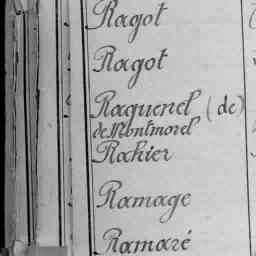 Ragot
Ragot
Raguenel (de)
de Montmorel
Rahier
Ramage
Ramaré